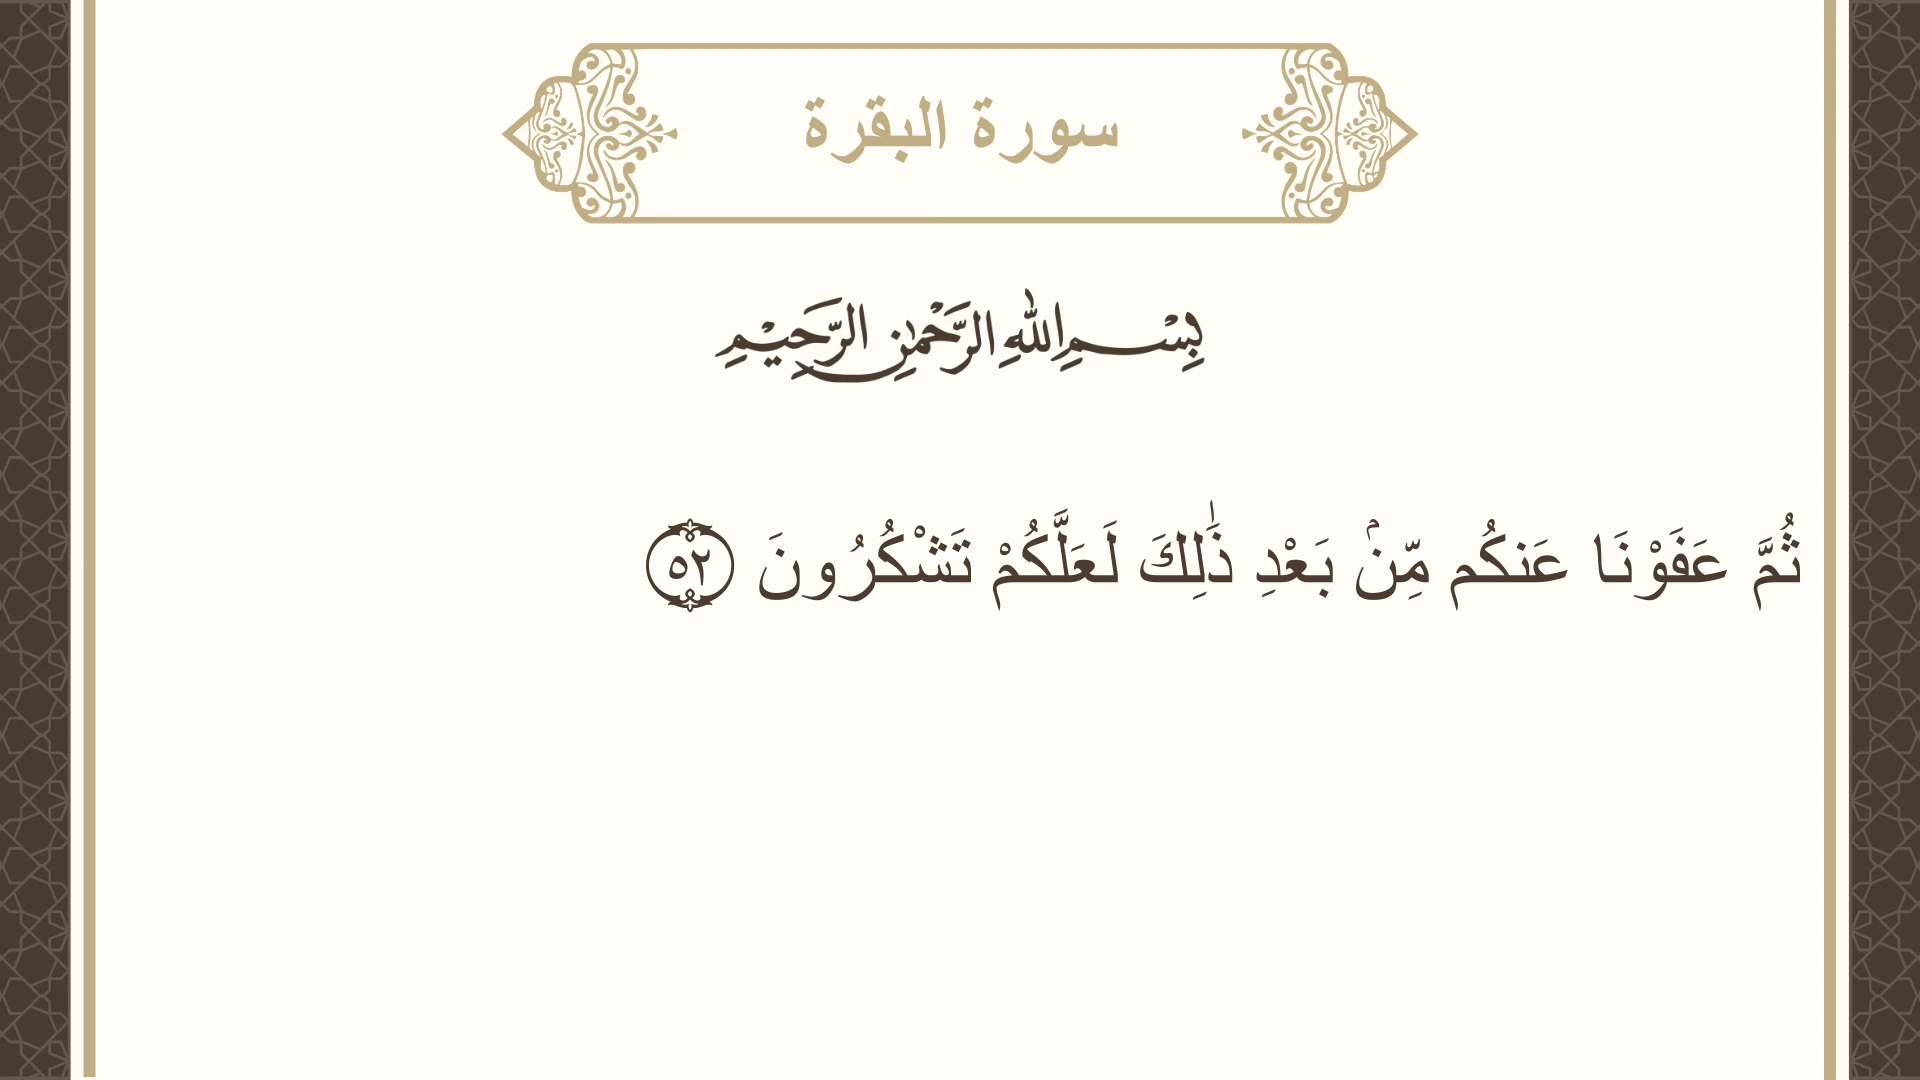 سورة البقرة
بِسْمِ اللهِ الرَّحْمٰنِ الرَّحِيْمِ
ثُمَّ عَفَوْنَا عَنكُم مِّنۢ بَعْدِ ذَٰلِكَ لَعَلَّكُمْ تَشْكُرُونَ ٥٢